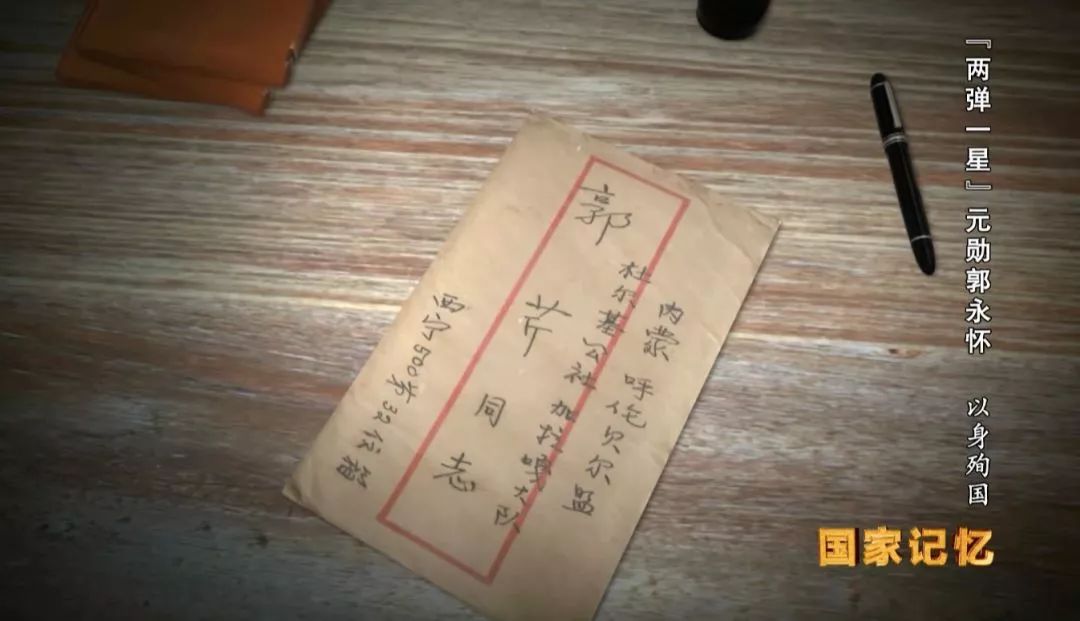 『两弹一星』元勋郭永怀 以身殉国
国家记忆
内蒙 呼伦贝尔盟
杜尔基公社加拉嘎大队
郭芹同志
西宁500第32信箱